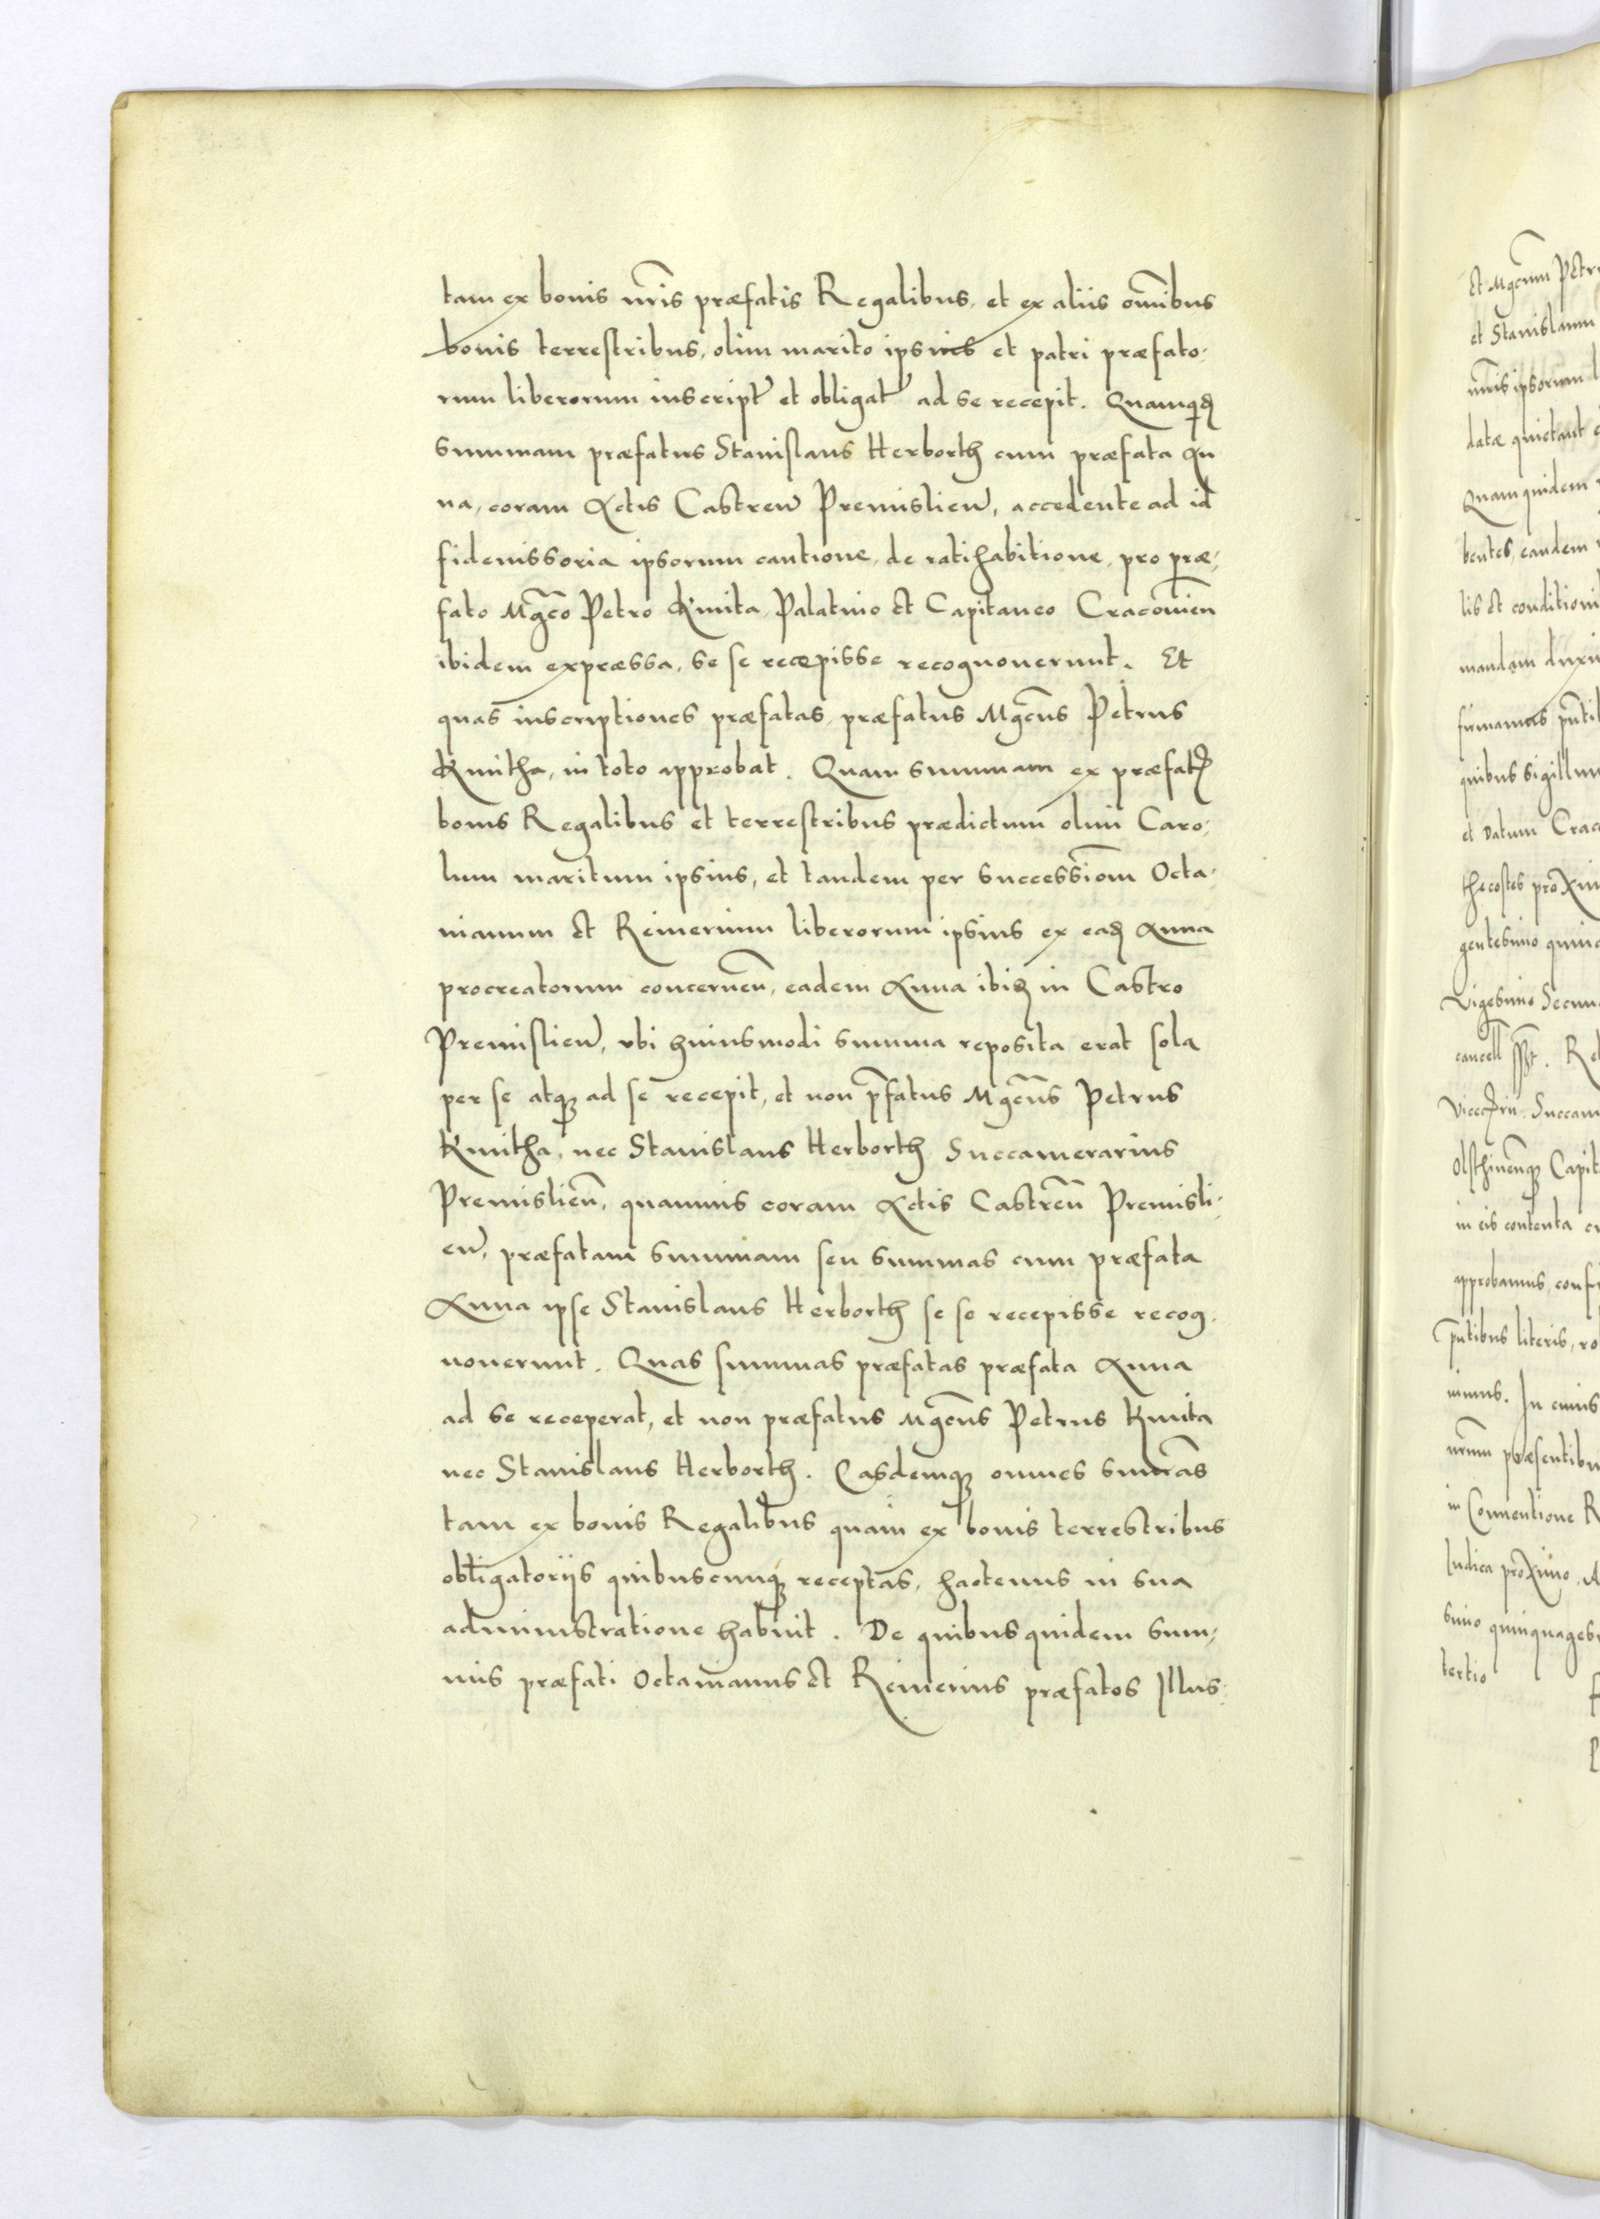 tam ex bonis nr̃is præfatis Regalibus, et ex aliis om̃ibus
bonis terrestribus, olim marito ipsius et patri præfato,
rum liberorum inscript̃ et obligat̃ ad se recepit. Quamqđ
summam præfatus Stanislaus Herborth cum præfata An
na, coram Actis Castreñ Premislieñ, accedente ad id
fideiussoria ipsorum cautione, de ratihabitione, pro præ,
fato Mgc̃o Petro Kmita, Palatino et Capitaneo Cracouieñ
ibidem expræssa, se se recæpisse recognouerunt. Et
quas inscriptiones præfatas, præfatus Mgc̃us Petrus
Kmitha, in toto approbat. Quam summam ex præfatis
bonis Regalibus et terrestribus prædictum olim Caro,
lum maritum ipsius, et tandem per successiom̃ Octa,
uianum et Reinerium liberorum ipsius ex eađ Anna
procreatorum concerneñ, eadem Anna ibiđ in Castro
Premislieñ, vbi huiusmodi summa reposita erat sola
per se atq̃ ad se recepit, et non p̃fatus Mgc̃us Petrus
Kmitha, nec Stanislaus Herborth Succamerarius
Premislieñ, quamuis coram Actis Castreñ Premisli,
eñ, præfatam summam seu summas cum præfata
Anna ipse Stanislaus Herborth se se recepisse recog,
nouerunt. Quas summas præfatas præfata Anna
ad se receperat, et non præfatus Mgc̃us Petrus Kmita
nec Stanislaus Herborth. Easdemq̃ omnes sum̃as
tam ex bonis Regalibus quam ex bonis terrestribus
obligatoriis quibuscunq̃ receptas, hactenus in sua
administratione habuit. De quibus quidem sum,
mis præfati Octauianus et Reinerius præfatos Illus,
Et Mgc̃um Petr
et Stanislaum
datæ quietant
Quam quidem
bentes, eandem
lis et conditioni
mandam duxi
firmamus
quibus sigillum
et Datum Crac
thecostes proxi
gentesimo quin
Vigesimo Secun
Succam
Capit
in eis contenta
approbamus, conf
p̃ntibus literis, ro
imus. In cuius
nr̃um præsentibu
in Conuentione R
Iudica proximo, A
simo quinquages
tertio